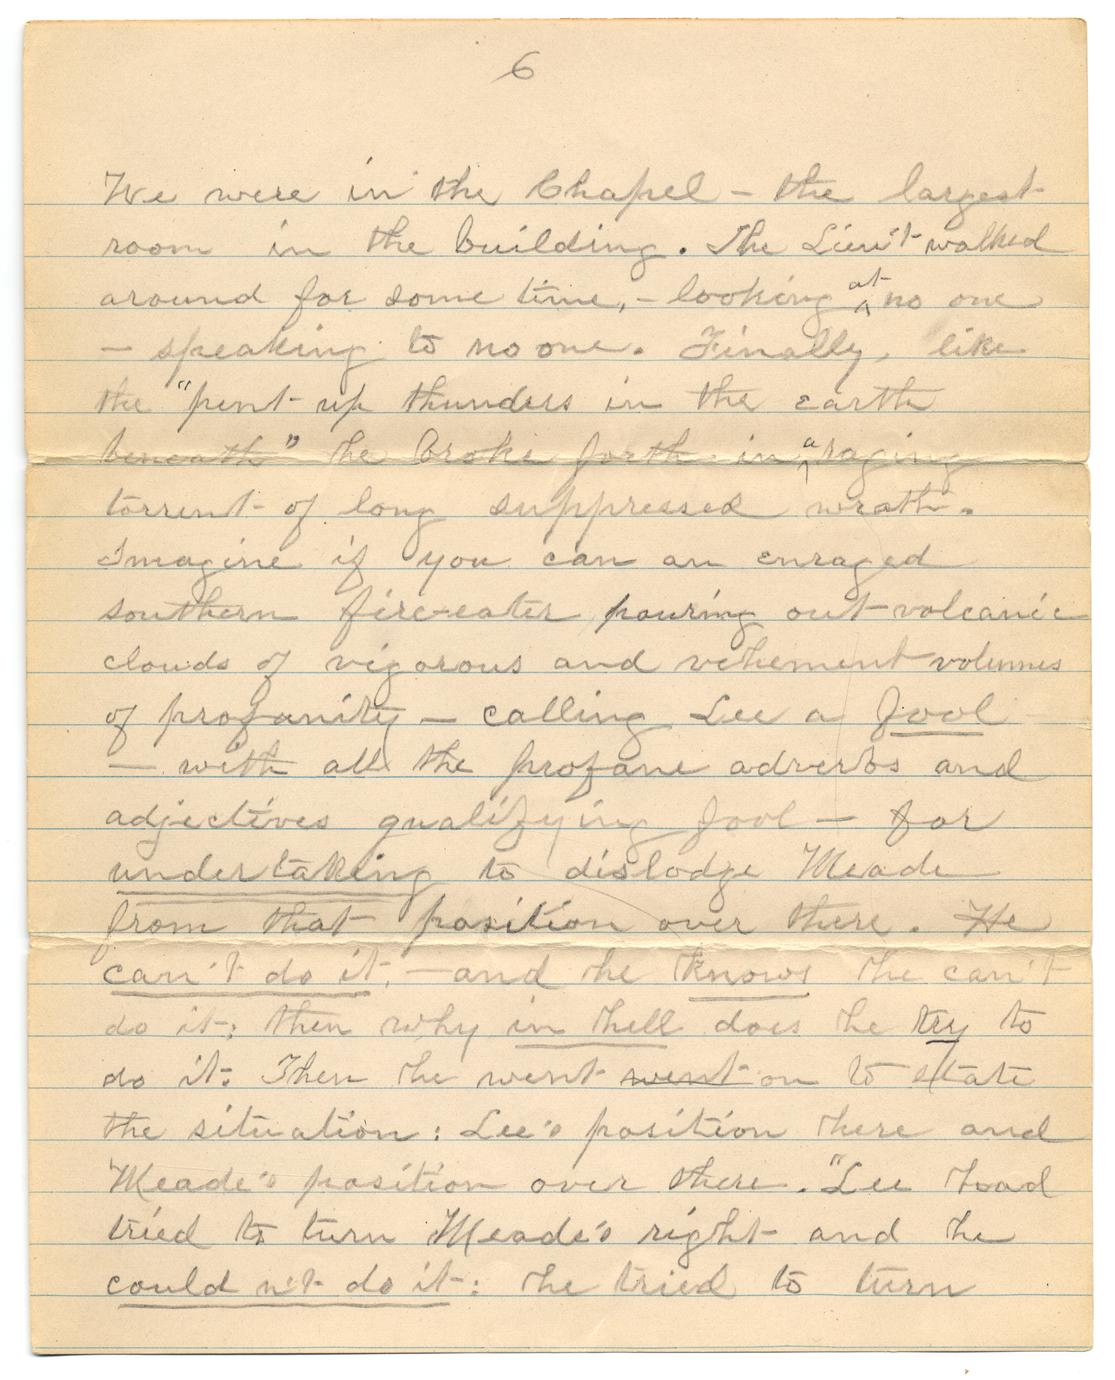 6
We were in the Chapel – the largest
room in the building. The Lieu't walked
around for some time, – looking at no one
– speaking to no one. Finally, like
the "pent up thunders in the earth
beneath" he broke forth in a raging
torrent of long suppressed wrath.
Imagine if you can an enraged
southern fire-eater pouring out volcanic
clouds of vigorous and vehement volumes
of profanity – calling Lee a fool –
– with all the profane adverbs and
adjectives qualifying fool – for
undertaking to dislodge Meade
from that position over there. He
can't do it, – and he knows he can't
do it; then why in hell does he try to
do it: Then he went went on to state
the situation: Lee's position here and
Meade's position over there. "Lee had
tried to turn Meade's right and he
could n't do it: he tried to turn